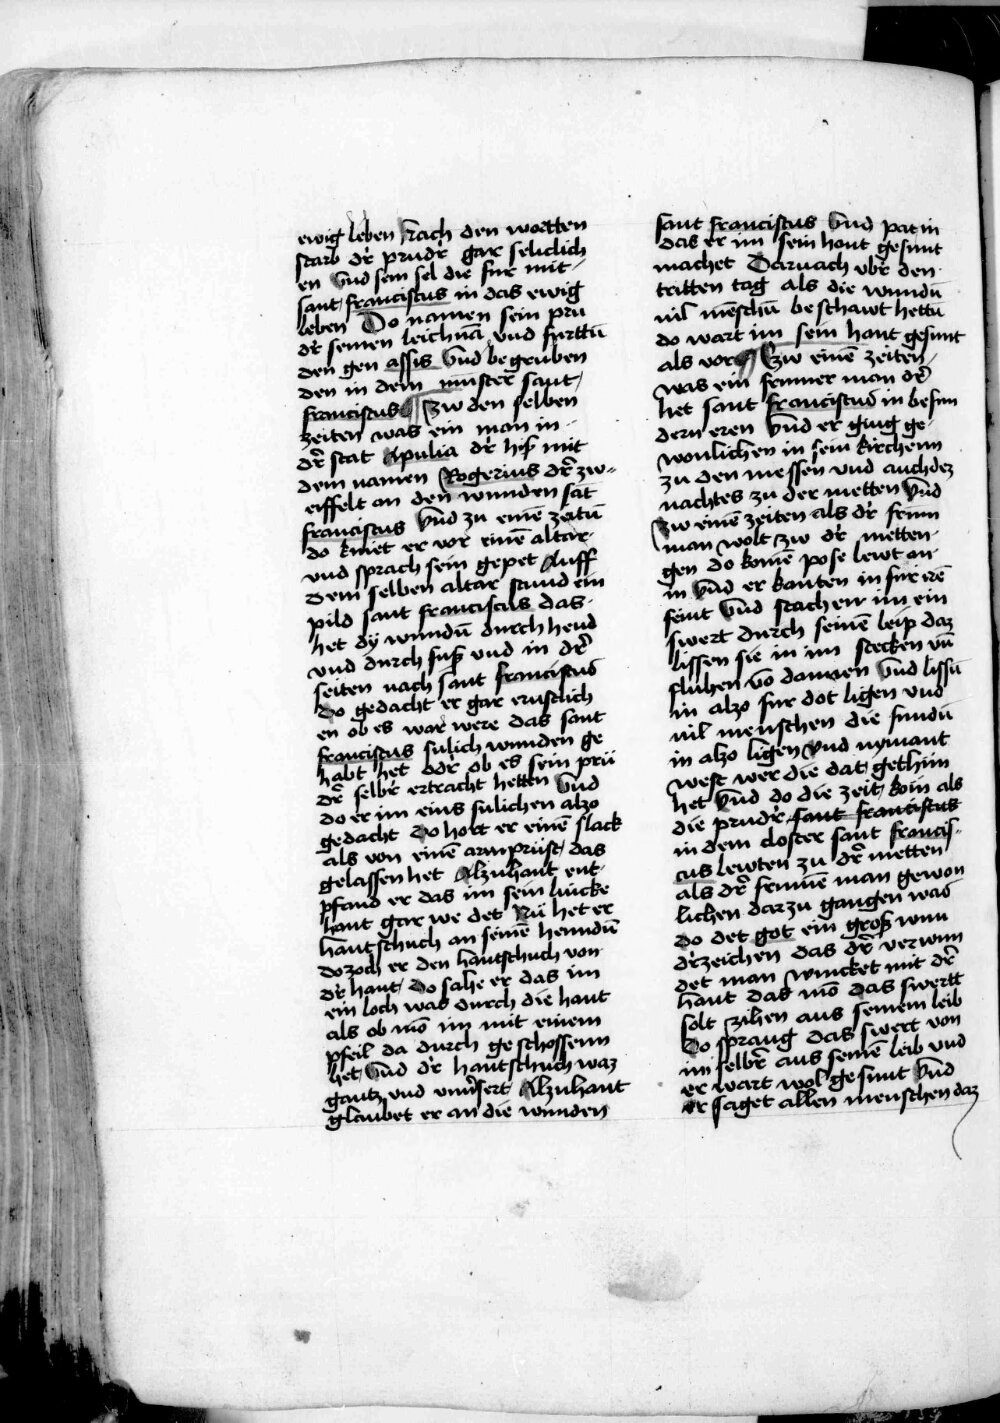 ewig leben Nach den wortten
starb dˀ prudˀ gar seliclich
en Vnd sein sel die fur mit
sant franciscus in das ewig
leben Do namen sein pru
dˀ seinen leichnā vnd furttū
den gen assis Vnd begruben
den in dem munster sant
franciscus ¶ Zw den selben
zeiten was ein man in
dˀ stat Apulia dˀ hiß mit
dem namen Rogerius dˀ zw
eiffelt an den wunden sāt
franciscus Vnd zu einē zeitū
do kniet er vor einē altar
vnd sprach sein gepet Auff
dem selben altar stund ein
pild sant franciscus das
het dy wundū durch hend
vnd durch fuß vnd in dˀ
seiten nach sant franciscus
Do gedacht er gar ernstlich
en ob es war were das sant
franciscus sulich wunden ge
habt het odˀ ob es sein prü
dˀ selbˀ ertracht hetten Vnd
do er im eins sulichen alzo
gedacht Do hort er einen slack
als von einē armprüst das
gelassen het Alzuhant ent
pfand er das im sein lincke
hant gar we det Nū het er
hantschuch an seinē henndū
do zoch er den hantschuch von
dˀ hant Do sahe er das im
ein loch was durch die hant
als ob mō im mit einem
pfeil da durch geschossenn
het Vnd dˀ hantschuch waz
gantz vnd vnuˀsert Alzuhant
glaubet er an die wunden
sant franciscus Vnd pat in
das er im sein hont gesunt
machet Darnach vbˀ den
tritten tag als die wundū
vil mēschū beschawt hettū
do wart im sein hant gesunt
als vor ¶ Zw einē zeiten
was ein frumer man dˀ
het sant franciscus in besun
dern eren Vnd er ging ge
wonlichen in sein kirchenn
zu den messen vnd auch dez
nachtes zu der metten Vnd
Zw einē zeiten als dˀ frum
man wolt zw dˀ metten
gen do komē pose lewt an
in Vnd er kanten in fur irē
feint Vnd stachen im ein
swert durch seinē leip daz
lissen sie in im stecken vn̄
fluhen vō dannen Vnd lissū
in alzo fur dot ligen vnd
vil menschen die fundū
in alzo ligen Vnd nymant
west wer die dat gethun
het Vnd do die zeit kom als
die prudˀ sant franciscus
in dem closter sant francis
cus lewten zu dˀ metten
als dˀ frumē man gewon
lichen darzu gangen was
Do det got ein groß wun
dˀzeichen das dˀ verwun
det man wincket mit dˀ
hant das mō das swertt
solt zihen aus seinem leib
Do sprang das swert von
im selbˀ aus seinē leib vnd
er wart wol gesunt Vnd
er saget allen menschen daz